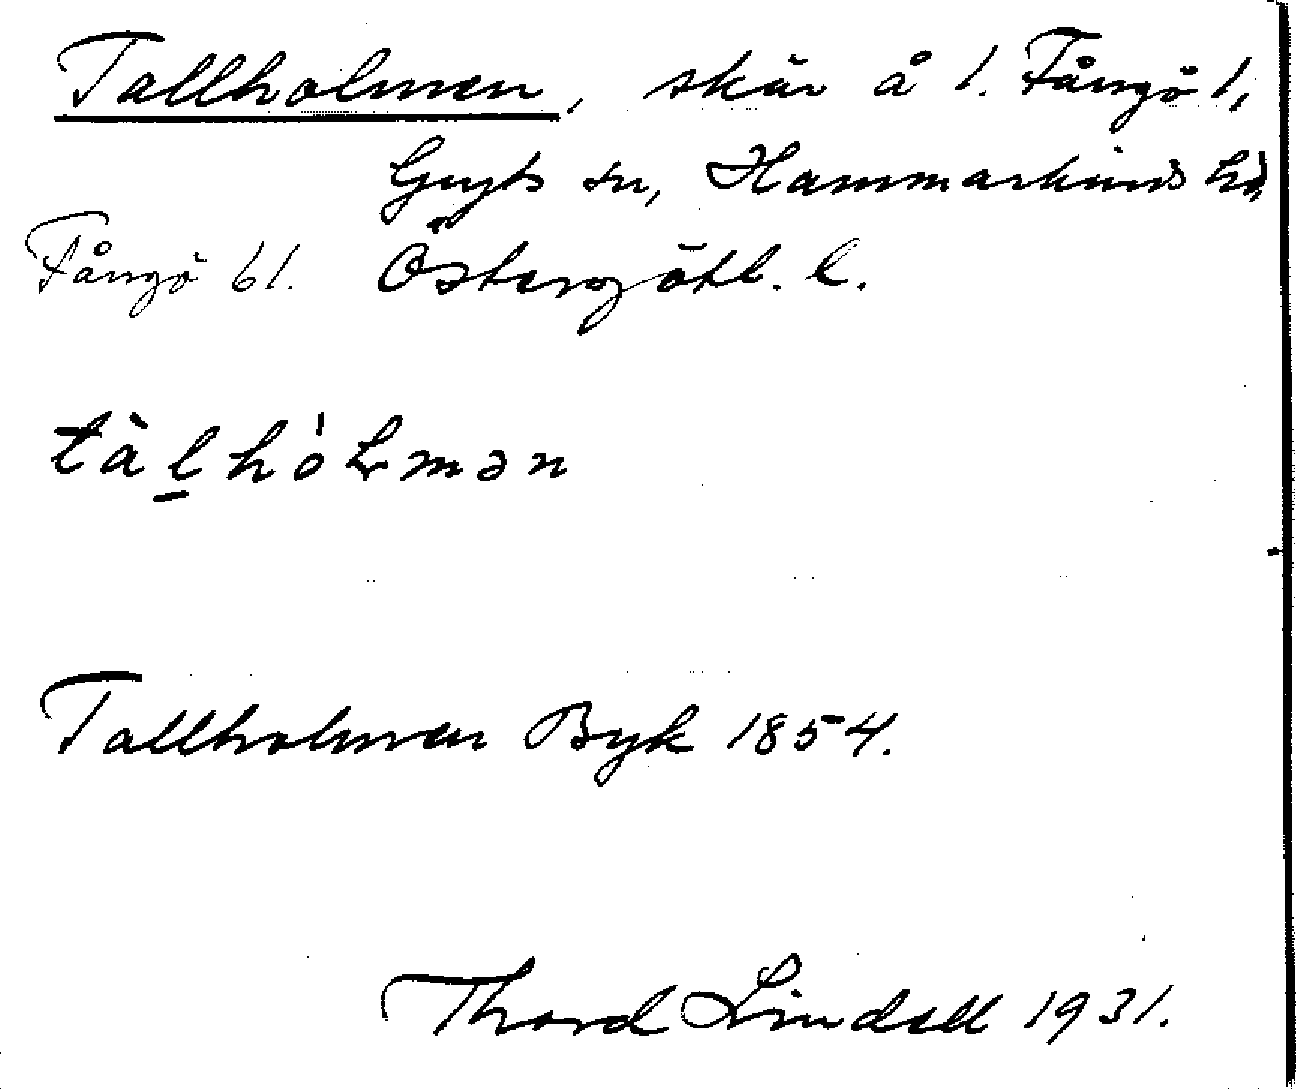 Tallholmen, skär å 1. Fångö 1,
Gryts sn, Hammarkinds hd,
Fångö 61. Östergötl. l.
tàḻhólmən
Tallholmen Byk 1854.
Thord Lindell 1931.